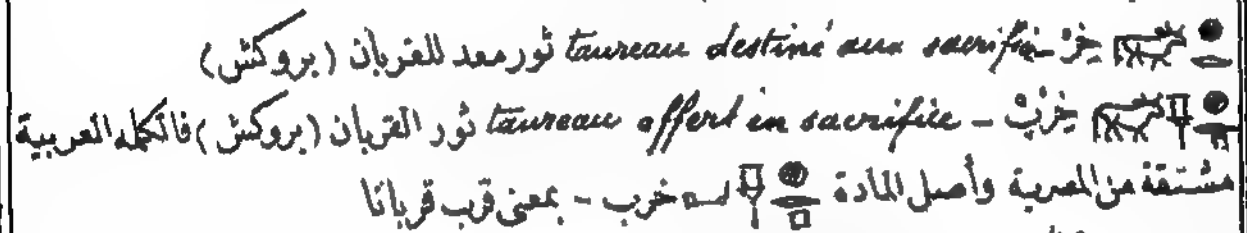 خِرْ - taureau destiné aux sacrifices ثور معد للقربان (بروكش)
خِرْبْ - taureau offert en sacrifice ثور القربان (بروكش) فالكلمه العربية
مشتقة من المصرية وأصل المادة خرب - بمعنى قرب قربانا